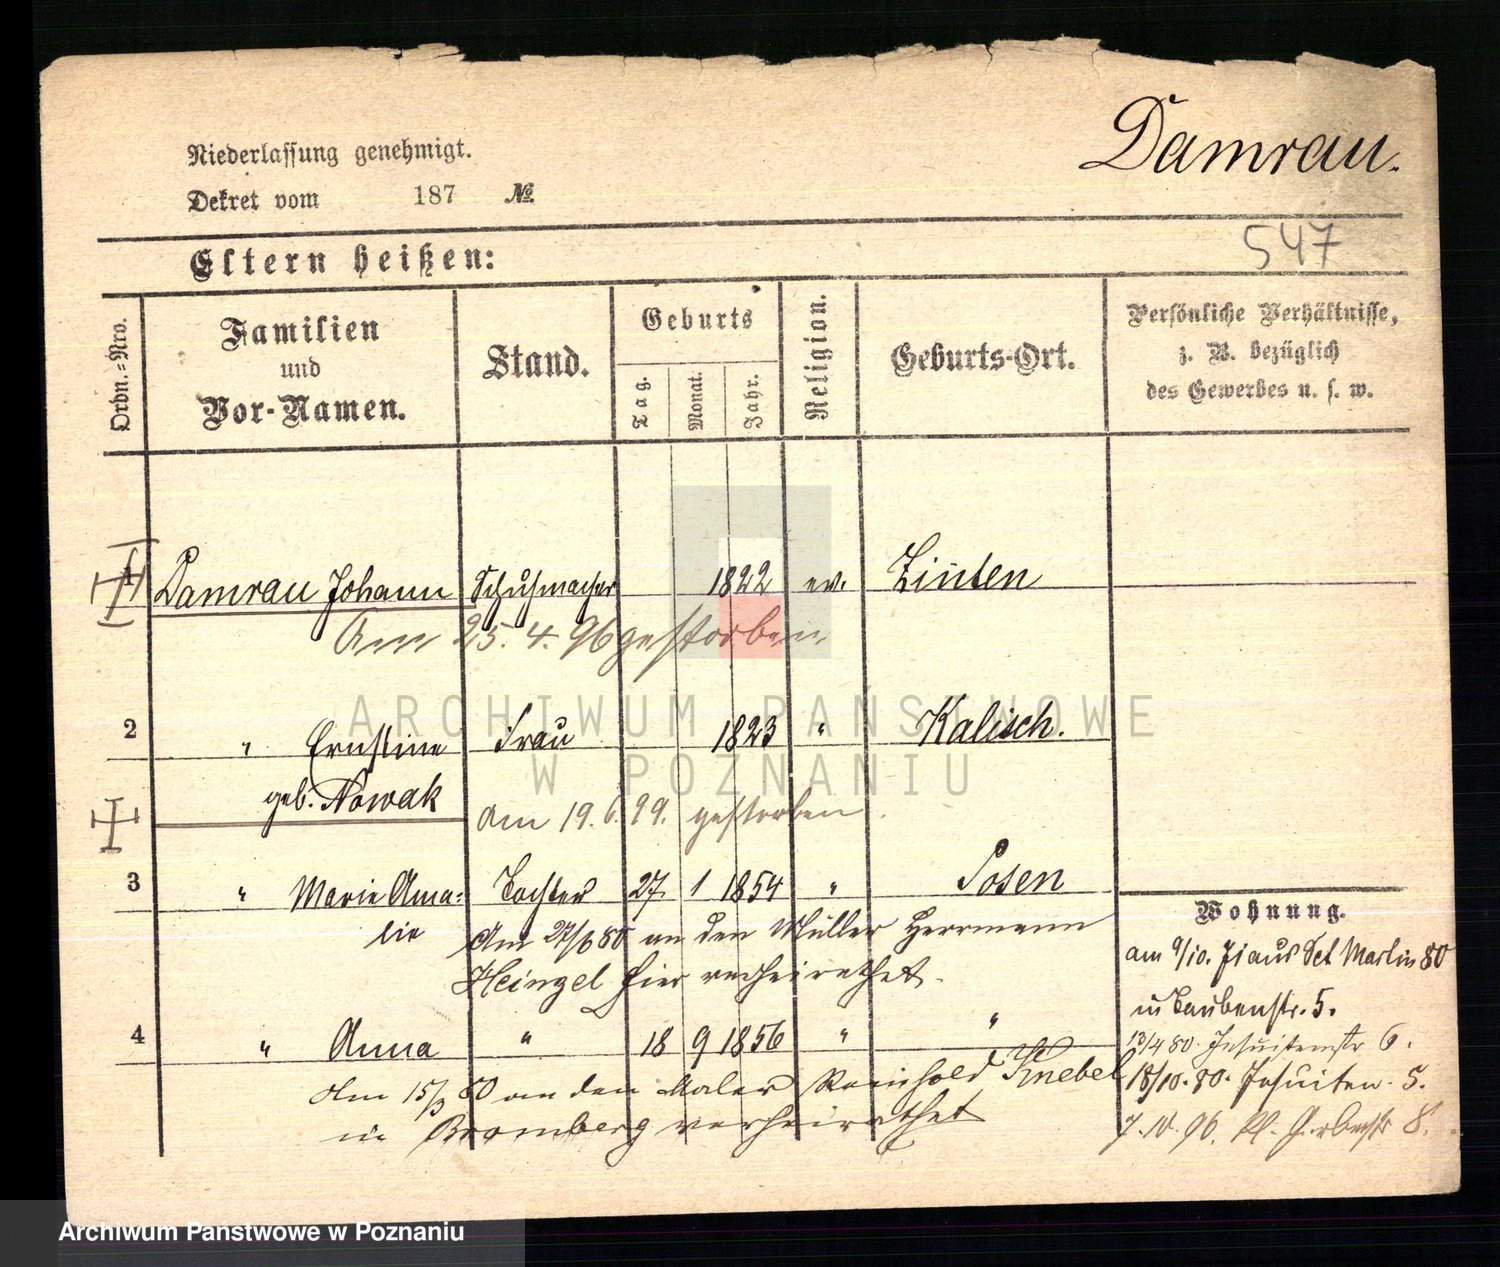 Niederlassung genehmigt.
Damrau.
Dekret vom 187 №
547
Eltern heißen:
Ordn.=Nro.
Familien
und
Vor-Namen.
Stand.
Geburts
Tag.
Monat.
Jahr.
Religion.
Geburts-Ort.
Persönliche Verhältnisse,
z. B. bezüglich
des Gewerbes u. s. w.
1 Damrau Johann Schuhmacher 1822 ev. Zinten
Am 25. 4. 96 gestorben
2 " Ernstine Frau 1823 " Kalisch.
geb. Nowak
am 19. 6. 99. gestorben.
3 " Marie Ama= Tochter 27. 1 1854 " Posen
lie Am 27/6 80 an den Müller Herrmann
Heinzel hier verheirathet.
4 " Anna " 18 9 1856 " "
Am 15/3 80 an den Maler Reinhold Knebel
in Bromberg verheirathet
Wohnung.
am 9/10. 71 aus Sct Martin 80
in Taubenstr. 5.
13/4 80. Jesuitenstr 6.
18/10. 80. Jesuiten. 5.
7. 10. 96. Kl. Gerberstr 8.
ARCHIWUM PAŃSTWOWE
W POZNANIU
Archiwum Państwowe w Poznaniu